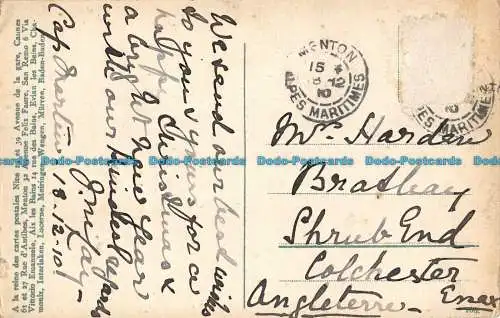 We send our best wishes
to you & yours for a
happy Christmas &
a bright New Year
with our kindest regards
Cap Martin 18.12.10
MENTON
15
12
10
ALPES MARITIMES
10
ALPES MARITIMES
Mrs Harden
Brathay
Shrub End
Colchester
Angleterre. Essex
A la reine des cartes postales Nice et 39 Avenue de la gare, Cannes
61 et 27 Rue d'Antibes, Menton 32 Avenue Felix Faure, San Remo 6 Via
Vittorio Emanuele, Aix les Bains 14 rue des Bains, Evian les Bains, Cha-
monix, Interlaken, Lucerne, Meiringen, Wengen, Mürren, Baden-Baden.
Bda-Postcards Bda-Postcards Bda-Postcards Bda-Postcards
Bda-Postcards Bda-Postcards Bda-Postcards Bda-Postcards